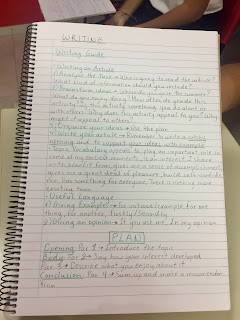 WRITING
Writing Guide
- Writing an Article
1) Analyse the Task → Who is going to read the article?
What kind of information should you include?
2) Brainstorm ideas → Where do you go in the summer?
What do you enjoy doing? How often do you do this
activity? Is this activity something you do alone or
with others? Why does this activity appeal to you? Why
might it appeal to others?
3) Organise your ideas → Use the plan
4) Write your article → Remember to write a catchy
opening and to support your ideas with example
- Topic Vocabulary: Appeals to, plays an important role in
some of my best moments, is an interest I share
with, benefit from, gives me a sense of accomplishment,
gives me a great deal of pleasure, build self-confid-
ence, has something for everyone, There is nothing more
exciting than
- Useful Language
1) Giving Examples → For instance/example, For one
thing, for another, Firstly/Secondly
2) Giving an opinion → If you ask me, In my opinion
PLAN
Opening: Par 1 → Introduce the topic
Body: Par 2 → Say how your interest developed
Par 3 → Describe what you enjoy about it
Conclusion: Par 4 → Sum up and make a recommenda-
tion